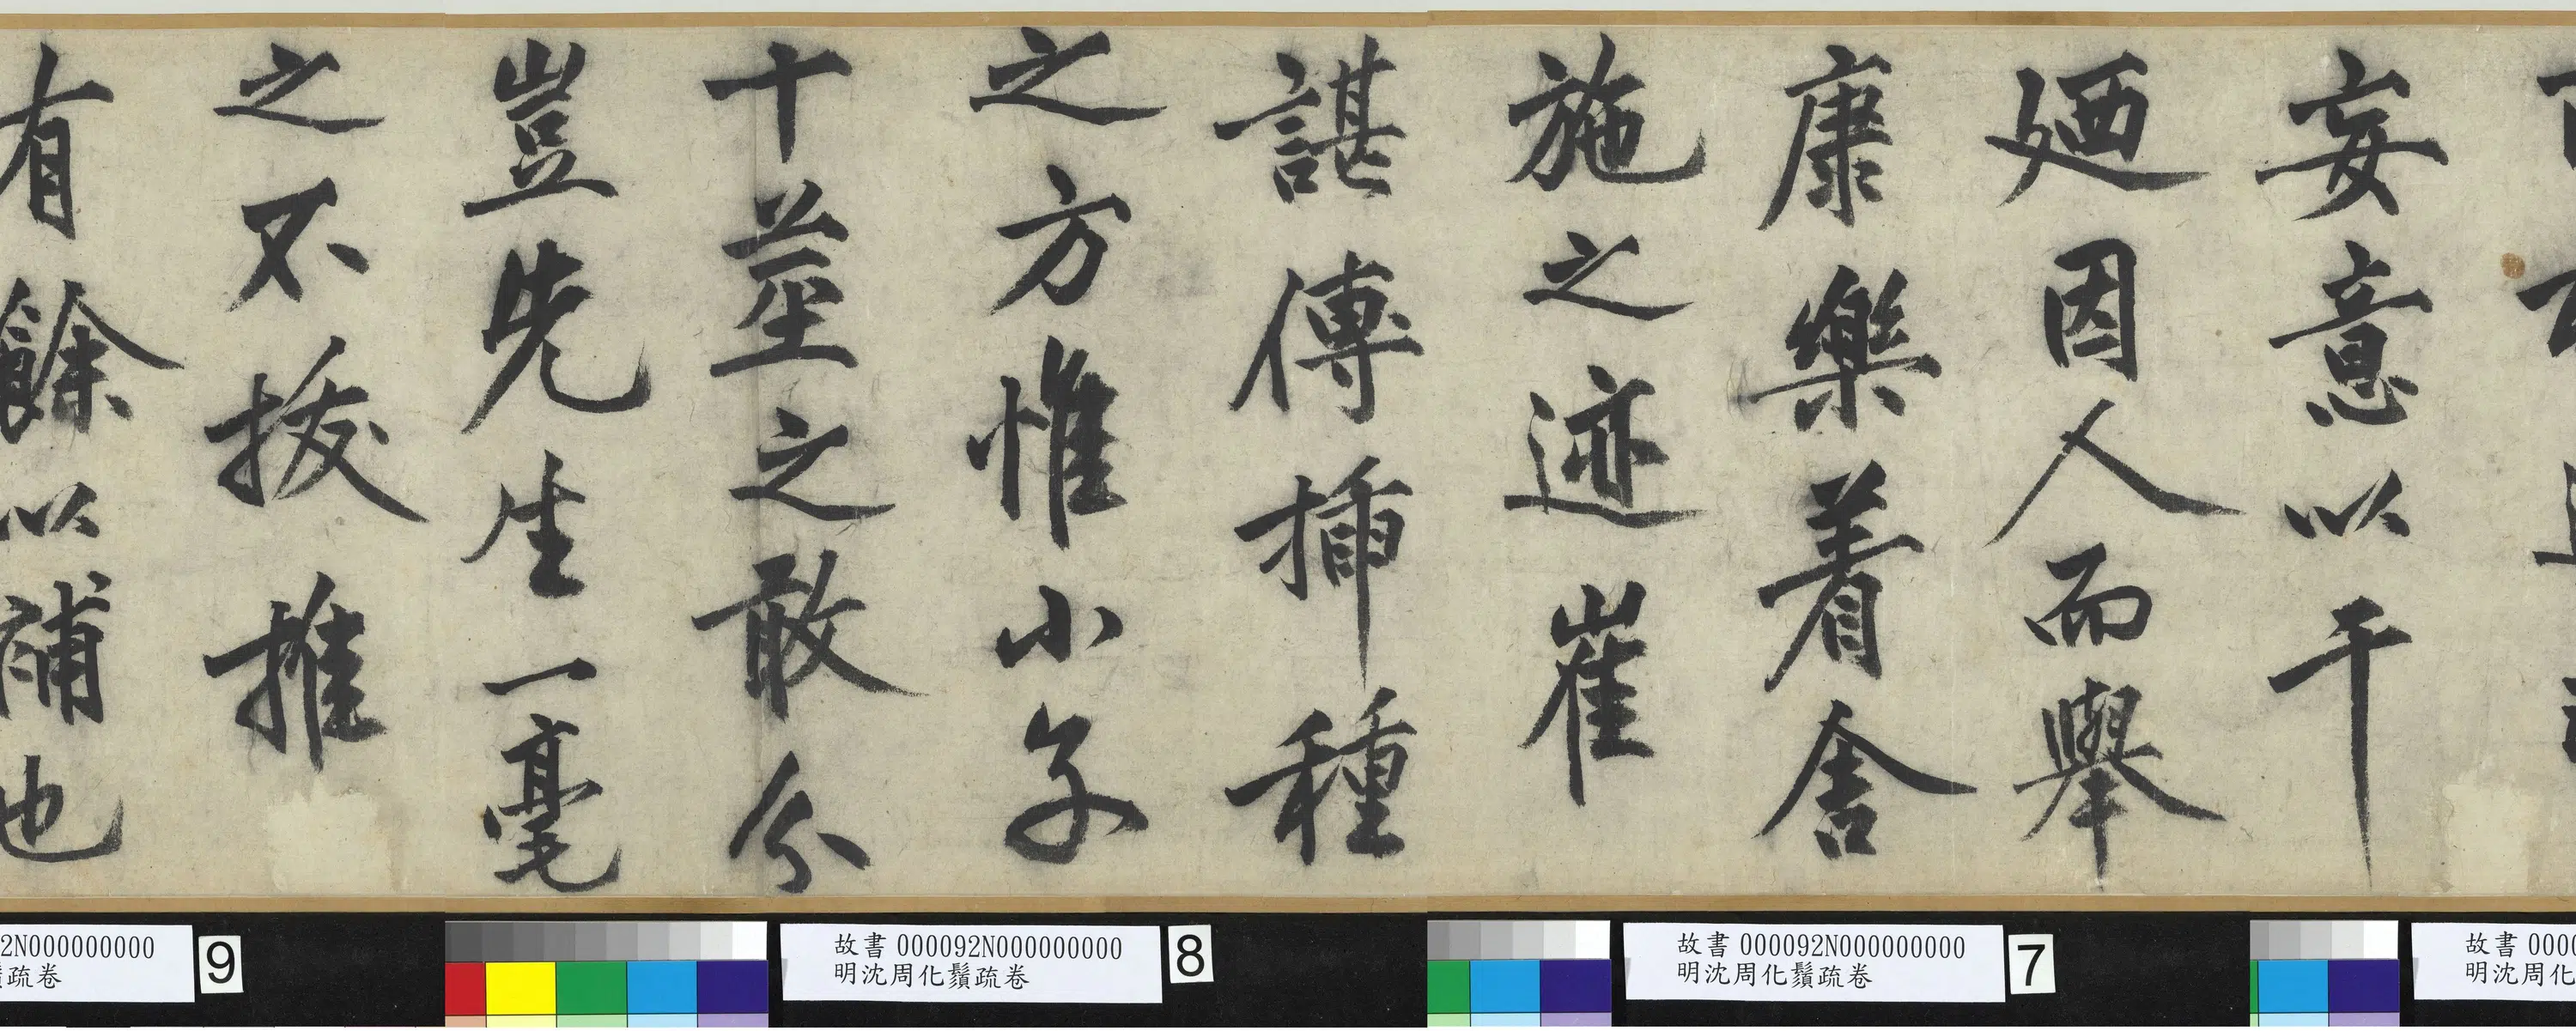 妄意以干
廼因人而舉
康樂着舍
施之迹崔
諶傳揷種
之方惟小子
十莖之敢分
豈先生一毫
之不拔推
有餘以補也
2N000000000
疏卷
9
故書 000092N000000000
明沈周化鬚疏卷
8
故書 000092N000000000
明沈周化鬚疏卷
7
故書 0000
明沈周化